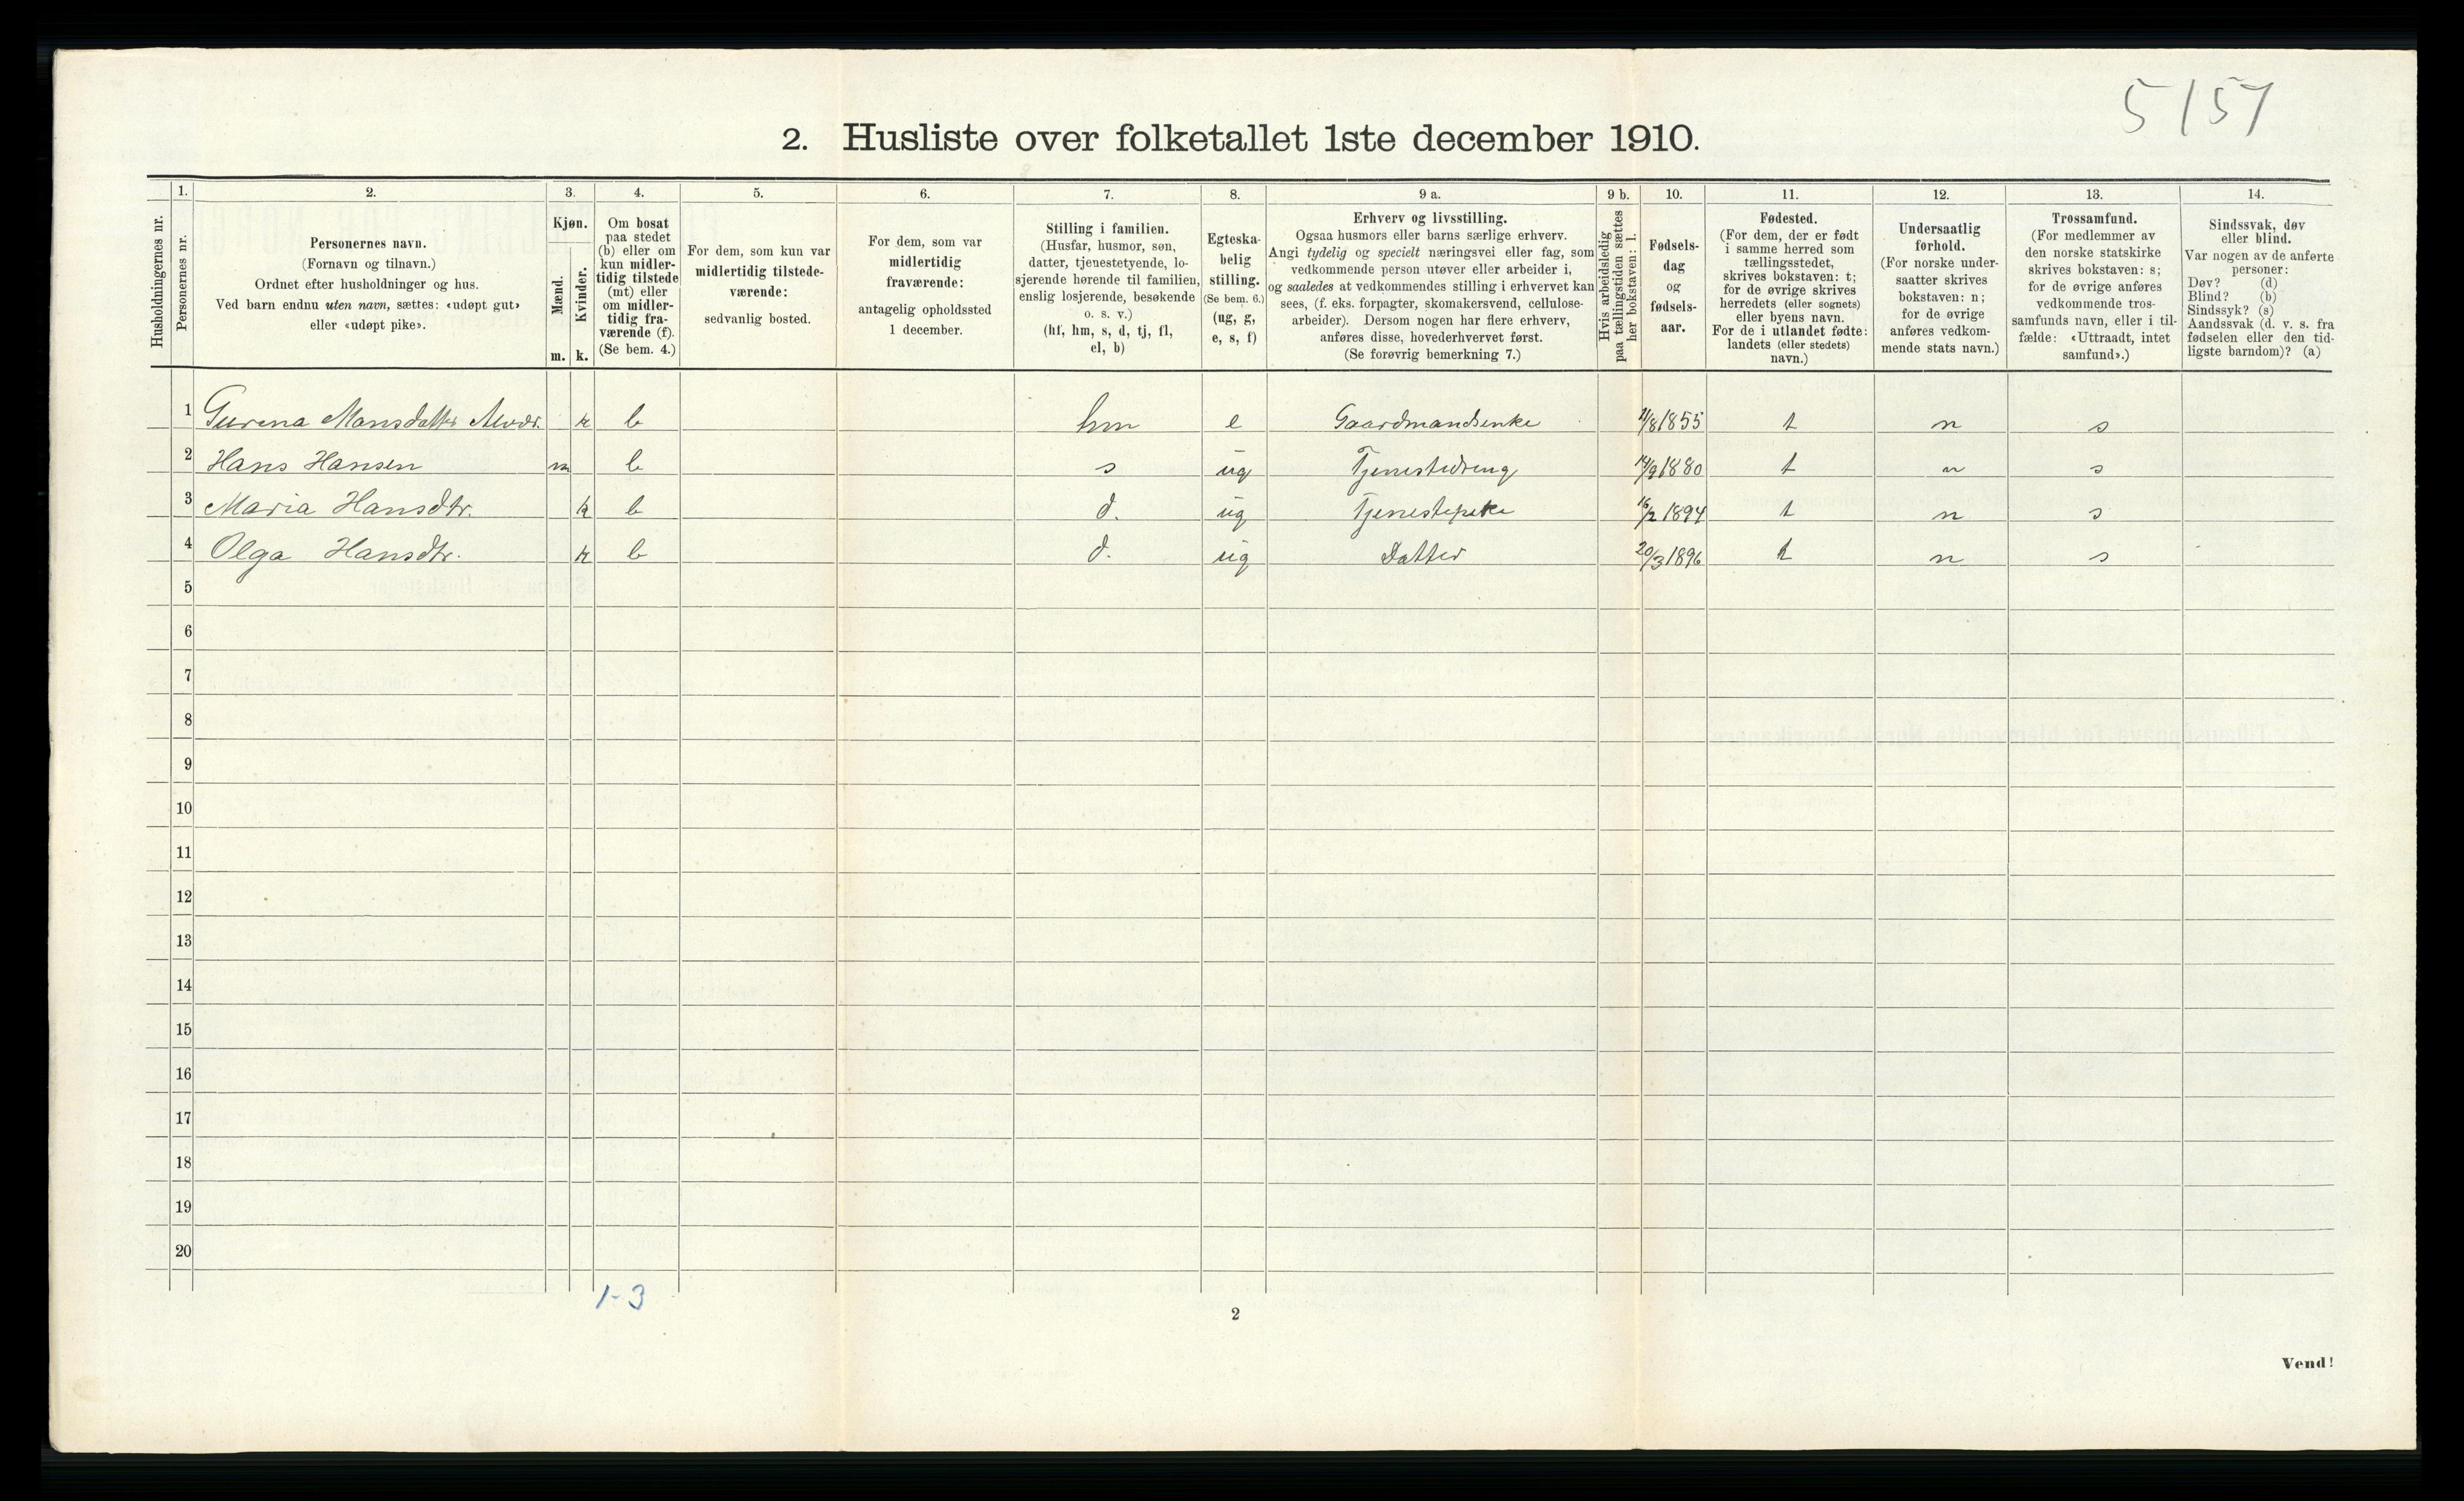 5157
2. Husliste over folketallet 1ste december 1910.
Husholdningernes nr.
1.
Personernes nr.
2.
Personernes navn.
(Fornavn og tilnavn.)
Ordnet efter husholdninger og hus.
Ved barn endnu uten navn, sættes: «udøpt gut»
eller «udøpt pike».
3.
Kjøn.
Mænd.
m.
Kvinder.
k.
4.
Om bosat
paa stedet
(b) eller om
kun midler-
tidig tilstede
(mt) eller
om midler-
tidig fra-
værende (f).
(Se bem. 4.)
5.
For dem, som kun var
midlertidig tilstede-
værende:
sedvanlig bosted.
6.
For dem, som var
midlertidig
fraværende:
antagelig opholdssted
1 december.
7.
Stilling i familien.
(Husfar, husmor, søn,
datter, tjenestetyende, lo-
sjerende hørende til familien,
enslig losjerende, besøkende
o. s. v.)
(hf, hm, s, d, tj, fl,
el, b)
8.
Egteska-
belig
stilling.
(Se bem. 6.)
(ug, g,
e, s, f)
9 a.
Erhverv og livsstilling.
Ogsaa husmors eller barns særlige erhverv.
Angi tydelig og specielt næringsvei eller fag, som
vedkommende person utøver eller arbeider i,
og saaledes at vedkommendes stilling i erhvervet kan
sees, (f. eks. forpagter, skomakersvend, cellulose-
arbeider). Dersom nogen har flere erhverv,
anføres disse, hovederhvervet først.
(Se forøvrig bemerkning 7.)
9 b.
Hvis arbeidsledig
paa tællingstiden sættes
her bokstaven: l.
10.
Fødsels-
dag
og
fødsels-
aar.
11.
Fødested.
(For dem, der er født
i samme herred som
tællingsstedet,
skrives bokstaven: t;
for de øvrige skrives
herredets (eller sognets)
eller byens navn.
For de i utlandet fødte:
landets (eller stedets)
navn.)
12.
Undersaatlig
forhold.
(For norske under-
saatter skrives
bokstaven: n;
for de øvrige
anføres vedkom-
mende stats navn.)
13.
Trossamfund.
(For medlemmer av
den norske statskirke
skrives bokstaven: s;
for de øvrige anføres
vedkommende tros-
samfunds navn, eller i til-
fælde: «Uttraadt, intet
samfund».)
14.
Sindssvak, døv
eller blind.
Var nogen av de anførte
personer:
Døv? (d)
Blind? (b)
Sindssyk? (s)
Aandssvak (d. v. s. fra
fødselen eller den tid-
ligste barndom)? (a)
1 Gurina Monsdatter k b hm e Gaardmandsenke /8 1855 t n s
2 Hans Hansen m b s ug Tjenestedreng 14/9 1880 t n s
3 Maria Hansdtr. k b d. ug Tjenestepike 16/2 1894 t n s
4 Olga Hansdtr. k b d. ug Datter 20/3 1896 t n s
5
6
7
8
9
10
11
12
13
14
15
16
17
18
19
20
1-3
2
Vend!